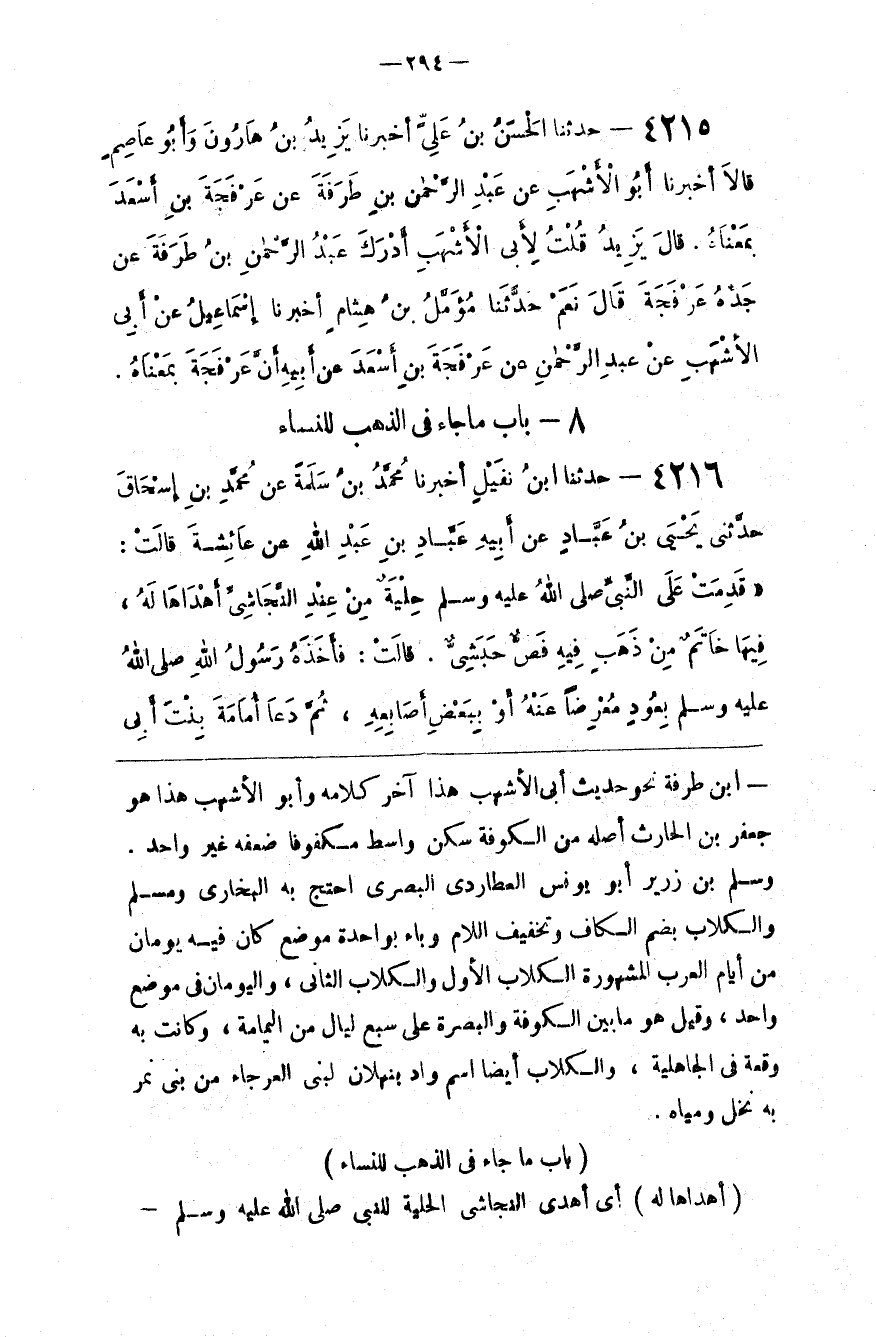 —٢٩٤—
٤٢١٥ — حدثنا الْحَسَنُ بنُ عَلِيٍّ أخبرنا يَزِيدُ بنُ هَارُونَ وَأَبُو عاَصِمٍ
قالاَ أخبرنا أَبُو الْأَشْهَبِ عن عَبْدِ الرَّحْمٰنِ بنِ طَرَفَةَ عن عَرْفَجَةَ بنِ أَسْعَدَ
بِمَعْنَاهُ . قالَ يَزِيدُ قُلْتُ لِأَبى الْأَشْهَبِ أَدْرَكَ عَبْدُ الرَّحْمٰنِ بنُ طَرَفَةَ عن
جَدِّهِ عَرْفَجَةَ قَالَ نَعَمْ حَدَّثَنا مُؤَمَّلُ بنُ هِشَامٍ أخبرنا إِسْمَاعِيلُ عنْ أَبِى
الأَشْهَبِ عنْ عبدِ الرَّحْمٰنِ عن عَرْفَجَةَ بنِ أَسْعَدَ عن أَبِيهِ أَنَّ عَرْفَجَةَ بِمَعْنَاهُ .
٨ — باب ماجاء فى الذهب للنساء
٤٢١٦ — حدثنا ابنُ نفَيْلٍ أخبرنا مُحمَّدُ بنُ سَلَمَةَ عن مُحمَّدِ بنِ إِسْحَاقَ
حدَّثنى يَحْيَى بنُ عَبَّادٍ عن أَبِيهِ عَبَّادِ بنِ عَبْدِ اللهِ عن عَائِشَةَ قالَتْ :
« قَدِمَتْ عَلَى النَّبىِّ صلى اللهُ عليه وسلم حِلْيَةٌ مِنْ عِنْدِ النَّجَاشِىِّ أَهْدَاهَا لَهُ ،
فِيهَا خَاتَمٌ مِنْ ذَهَبٍ فِيهِ فَصٌّ حَبَشِىٌّ . قالَتْ : فأَخَذَهُ رَسُولُ اللهِ صلى اللهُ
عليه وسلم بِعُودٍ مُعْرِضاً عَنْهُ أَوْ بِبَعْضِ أَصَابِعِهِ ، ثُمَّ دَعَا أُمَامَةَ بِنْتَ أَبِى
— ابن طرفة نحو حديث أبى الأشهب هذا آخر كلامه وأبو الأشهب هذا هو
جعفر بن الحارث أصله من الكوفة سكن واسط مكفوفا ضعفه غير واحد .
وسلم بن زرير أبو يونس العطاردى البصرى احتج به البخارى ومسلم
والكلاب بضم الكاف وتخفيف اللام وباء بواحدة موضع كان فيه يومان
من أيام العرب المشهورة الكلاب الأول والكلاب الثانى ، واليومان فى موضع
واحد ، وقيل هو مابين الكوفة والبصرة على سبع ليال من اليمامة ، وكانت به
وقعة فى الجاهلية ، والكلاب أيضا اسم واد بثهلان لبنى العرجاء من بنى نمر
به نخل ومياه .
( باب ما جاء فى الذهب للنساء )
( أهداها له ) أى أهدى النجاشى الحلية للنبى صلى الله عليه وسلم —